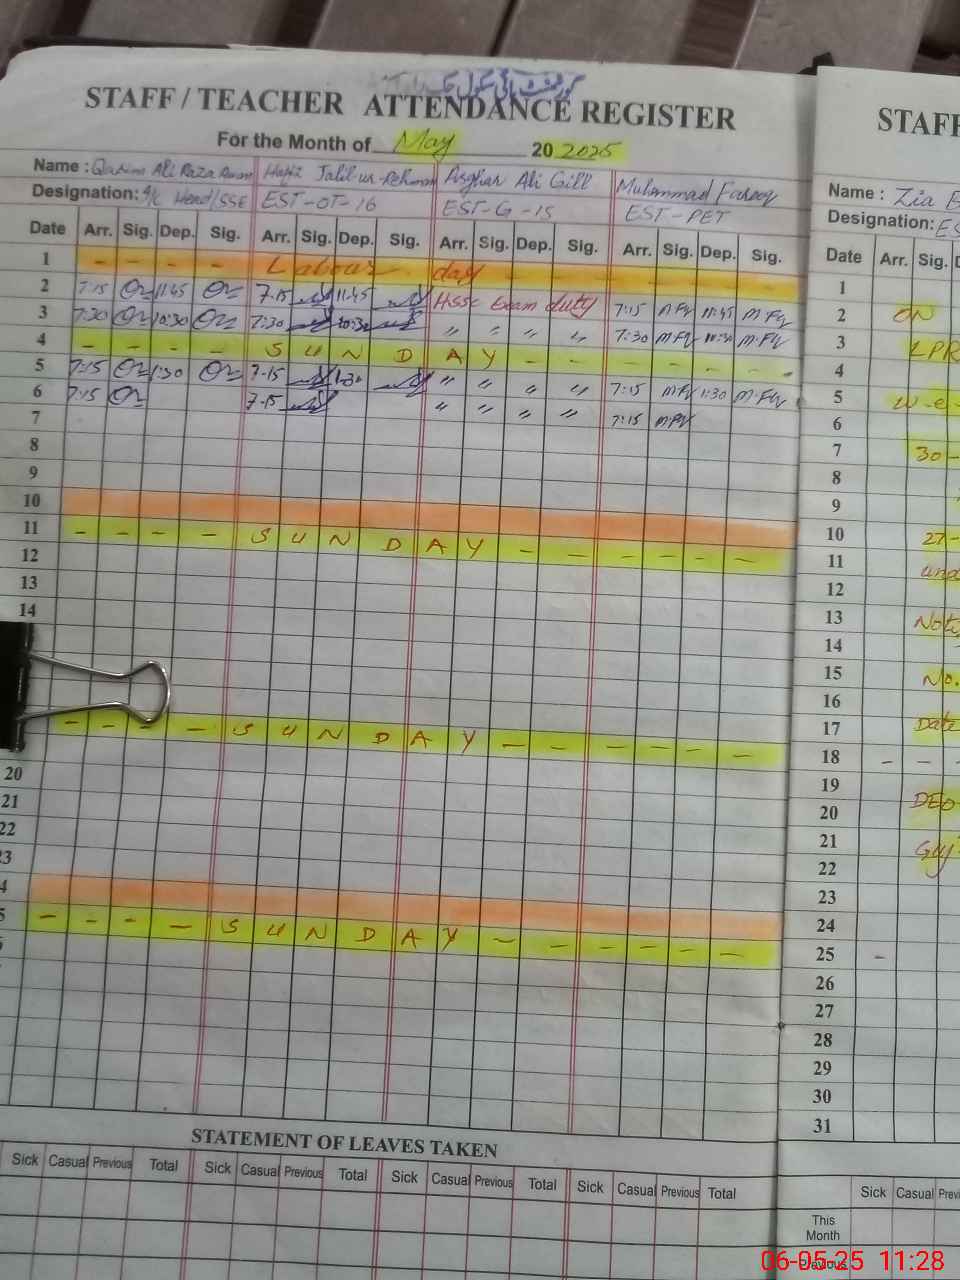 گورنمنٹ ہائی سکول چک
STAFF / TEACHER ATTENDANCE REGISTER
For the Month of May 20 2025
Name : Qasim Ali Raza Hafiz Jalil-ur-Rehman Asghar Ali Gill Muhammad Farooq
Designation: I/C Head/SSE EST-OT-16 EST-G-15 EST-PET
Date Arr. Sig. Dep. Sig. Arr. Sig. Dep. Sig. Arr. Sig. Dep. Sig. Arr. Sig. Dep. Sig.
1 - - - - Labour day - - - - - -
2 7:15 11:45 7-15 11-45 HSSC Exam duty 7:15 M.Fq 11:45 M.Fq
3 7:30 10:30 7:30 10:30 " " " " 7:30 M.Fq 10:30 M.Fq
4 - - - - S U N D A Y - - - - - -
5 7:15 1:30 7-15 1-30 " " " " 7:15 M.Fq 1:30 M.Fq
6 7:15 7-15 " " " " 7:15 M.Fq
7
8
9
10
11 - - - - S U N D A Y - - - - - -
12
13
14
- - - - S U N D A Y - - - - - -
20
21
22
23
4
5 - - - - S U N D A Y - - - - - -
STATEMENT OF LEAVES TAKEN
Sick Casual Previous Total Sick Casual Previous Total Sick Casual Previous Total Sick Casual Previous Total
STAFF
Name : Zia
Designation: ES
Date Arr. Sig. D
1
2 ON
3 LPR
4
5 w-e-
6
7 30-
8
9
10 27-
11
12
13
14
15 No.
16
17 Date
18 - - -
19
20 DEO
21
22
23
24
25 -
26
27
28
29
30
31
Sick Casual Previ
This
Month
Previous
06-05-25 11:28